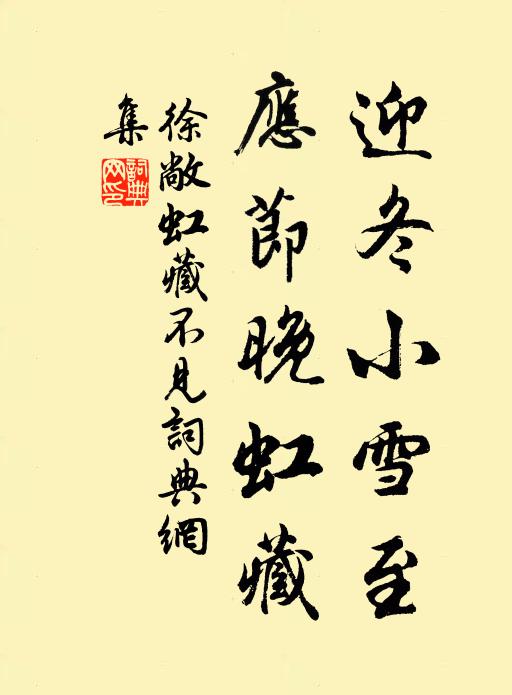 迎冬小雪至
應節晚虹藏
徐敞虹藏不見詞典網
集
詞典
网印